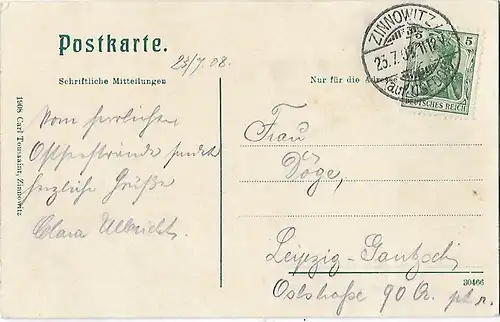 Postkarte.
23/7.08.
Schriftliche Mitteilungen
Nur für die Adresse
ZINNOWITZ
23.7.08
auf USEDOM
5
DEUTSCHES REICH
Vom herrlichen
Ostseestrande sendet
herzliche Grüße
Clara Ulbricht.
Frau
Döge,
Leipzig-Gautzsch
Oststraße 90
30466
1908 Carl Toussaint, Zinnowitz